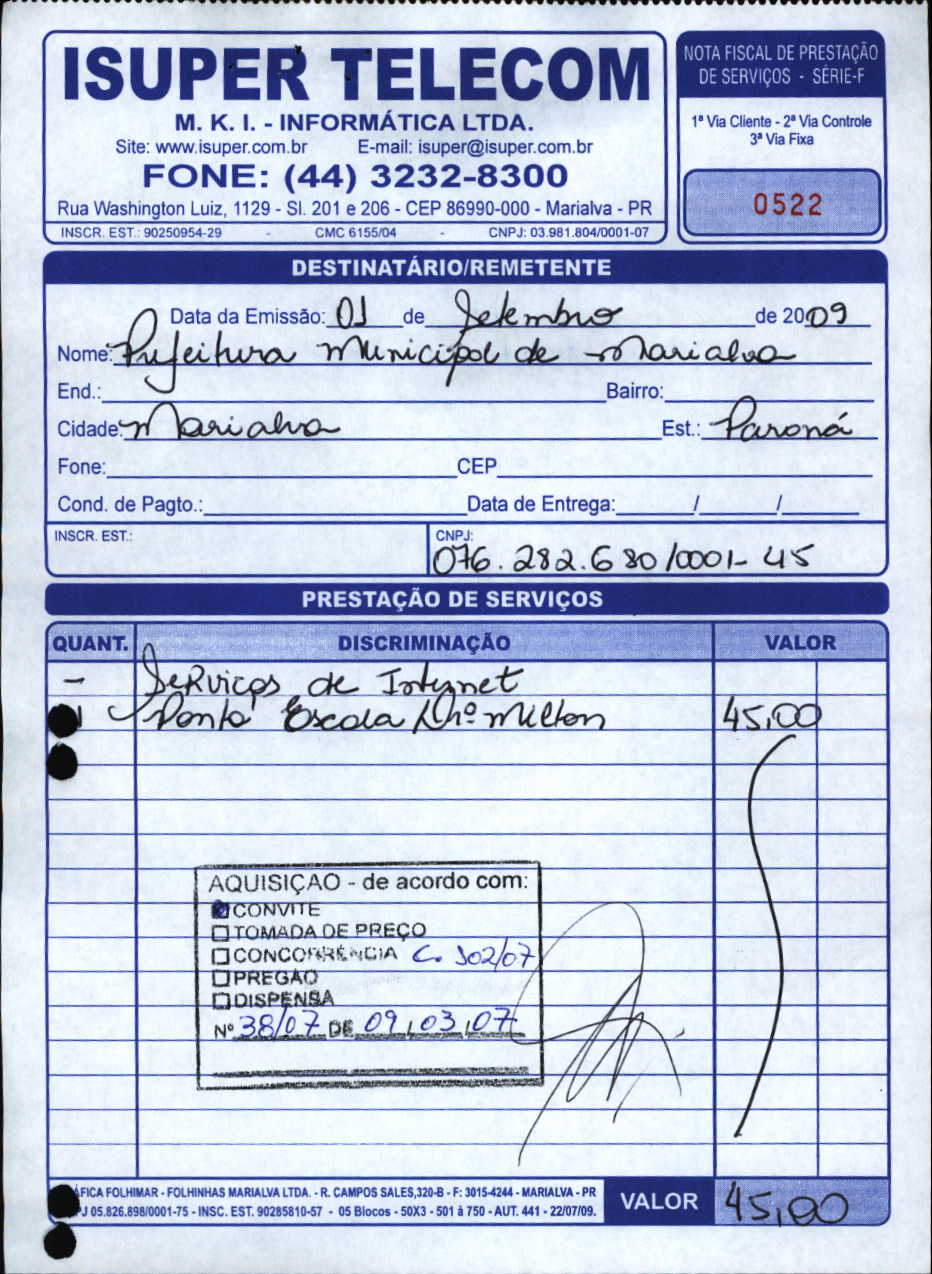 ISUPER TELECOM
M. K. I. - INFORMÁTICA LTDA.
Site: www.isuper.com.br E-mail: isuper@isuper.com.br
FONE: (44) 3232-8300
Rua Washington Luiz, 1129 - Sl. 201 e 206 - CEP 86990-000 - Marialva - PR
INSCR. EST.: 90250954-29 - CMC 6155/04 - CNPJ: 03.981.804/0001-07
NOTA FISCAL DE PRESTAÇÃO
DE SERVIÇOS - SÉRIE-F
1ª Via Cliente - 2ª Via Controle
3ª Via Fixa
0522
DESTINATÁRIO/REMETENTE
Data da Emissão: 01 de Setembro de 2009
Nome: Prefeitura Municipal de Marialva
End.: Bairro:
Cidade: Marialva Est.: Paraná
Fone: CEP
Cond. de Pagto.: Data de Entrega: / /
INSCR. EST.: CNPJ:
076.282.680/0001-45
PRESTAÇÃO DE SERVIÇOS
QUANT. DISCRIMINAÇÃO VALOR
- Serviços de Internet
Ponto Escola Milton 45,00
AQUISIÇÃO - de acordo com:
CONVITE
TOMADA DE PREÇO
CONCORRÊNCIA C. 302/07
PREGÃO
DISPENSA
Nº 38/07 DE 09/03/07
ÁFICA FOLHIMAR - FOLHINHAS MARIALVA LTDA. - R. CAMPOS SALES,320-B - F: 3015-4244 - MARIALVA - PR
J 05.826.898/0001-75 - INSC. EST. 90285810-57 - 05 Blocos - 50X3 - 501 à 750 - AUT. 441 - 22/07/09.
VALOR 45,00